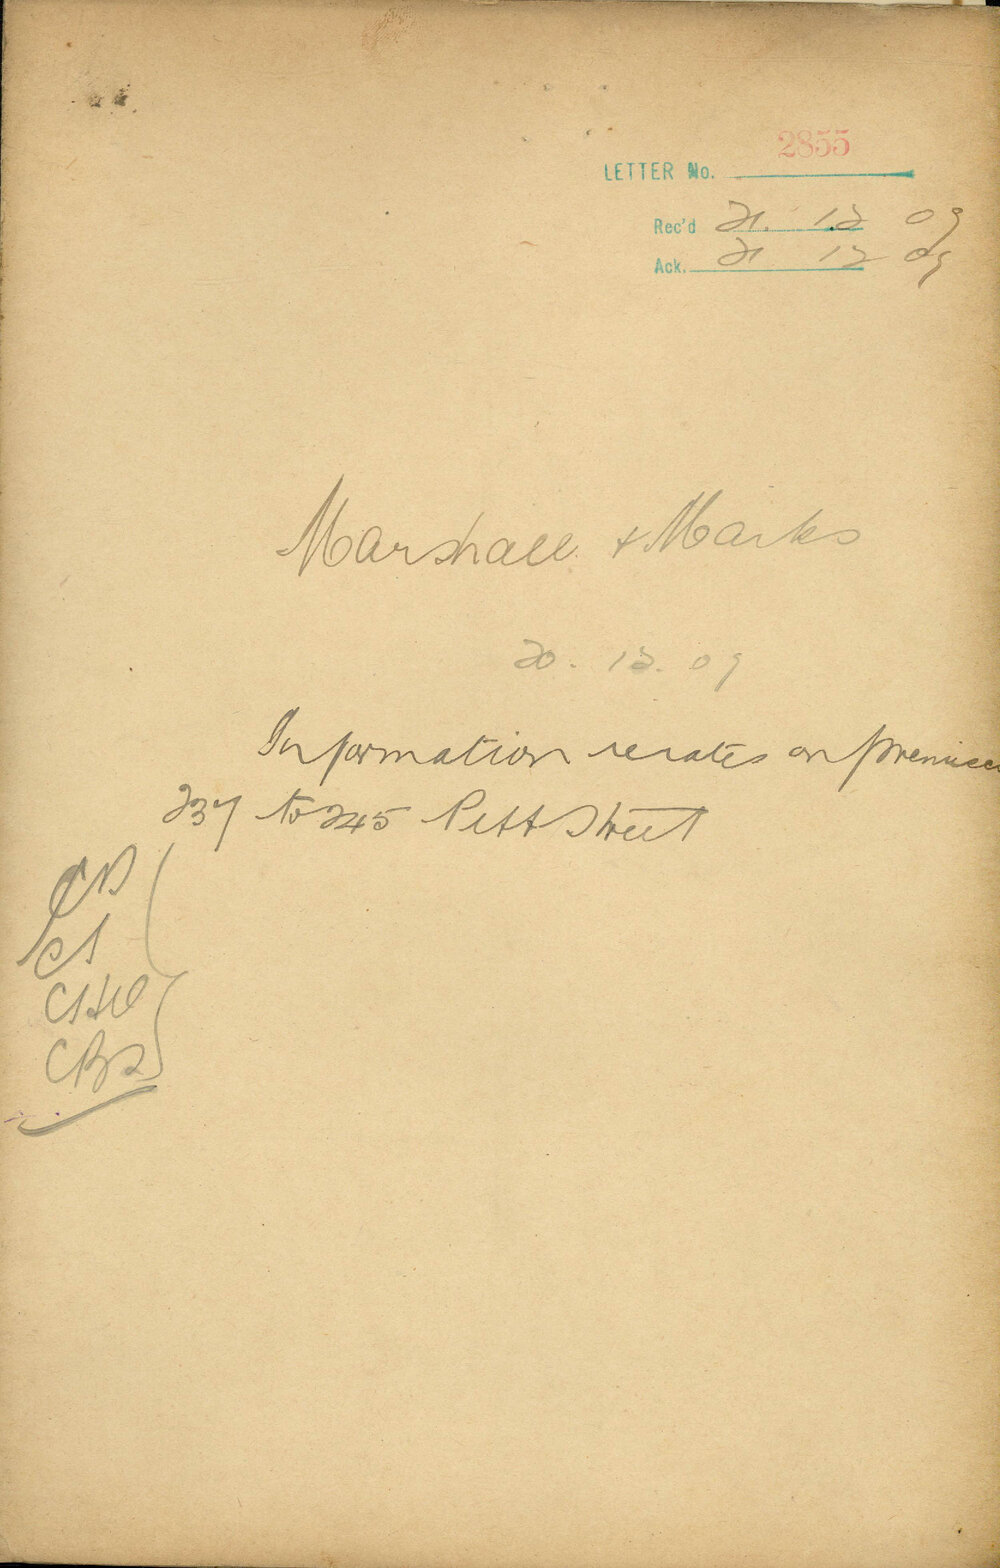 2855
LETTER No.
Rec'd 21. 12 09
Ack. 21 12 09
Marshall & Marks
20. 12. 09
Information re rates on premises
237 to 245 Pitt Street
CS